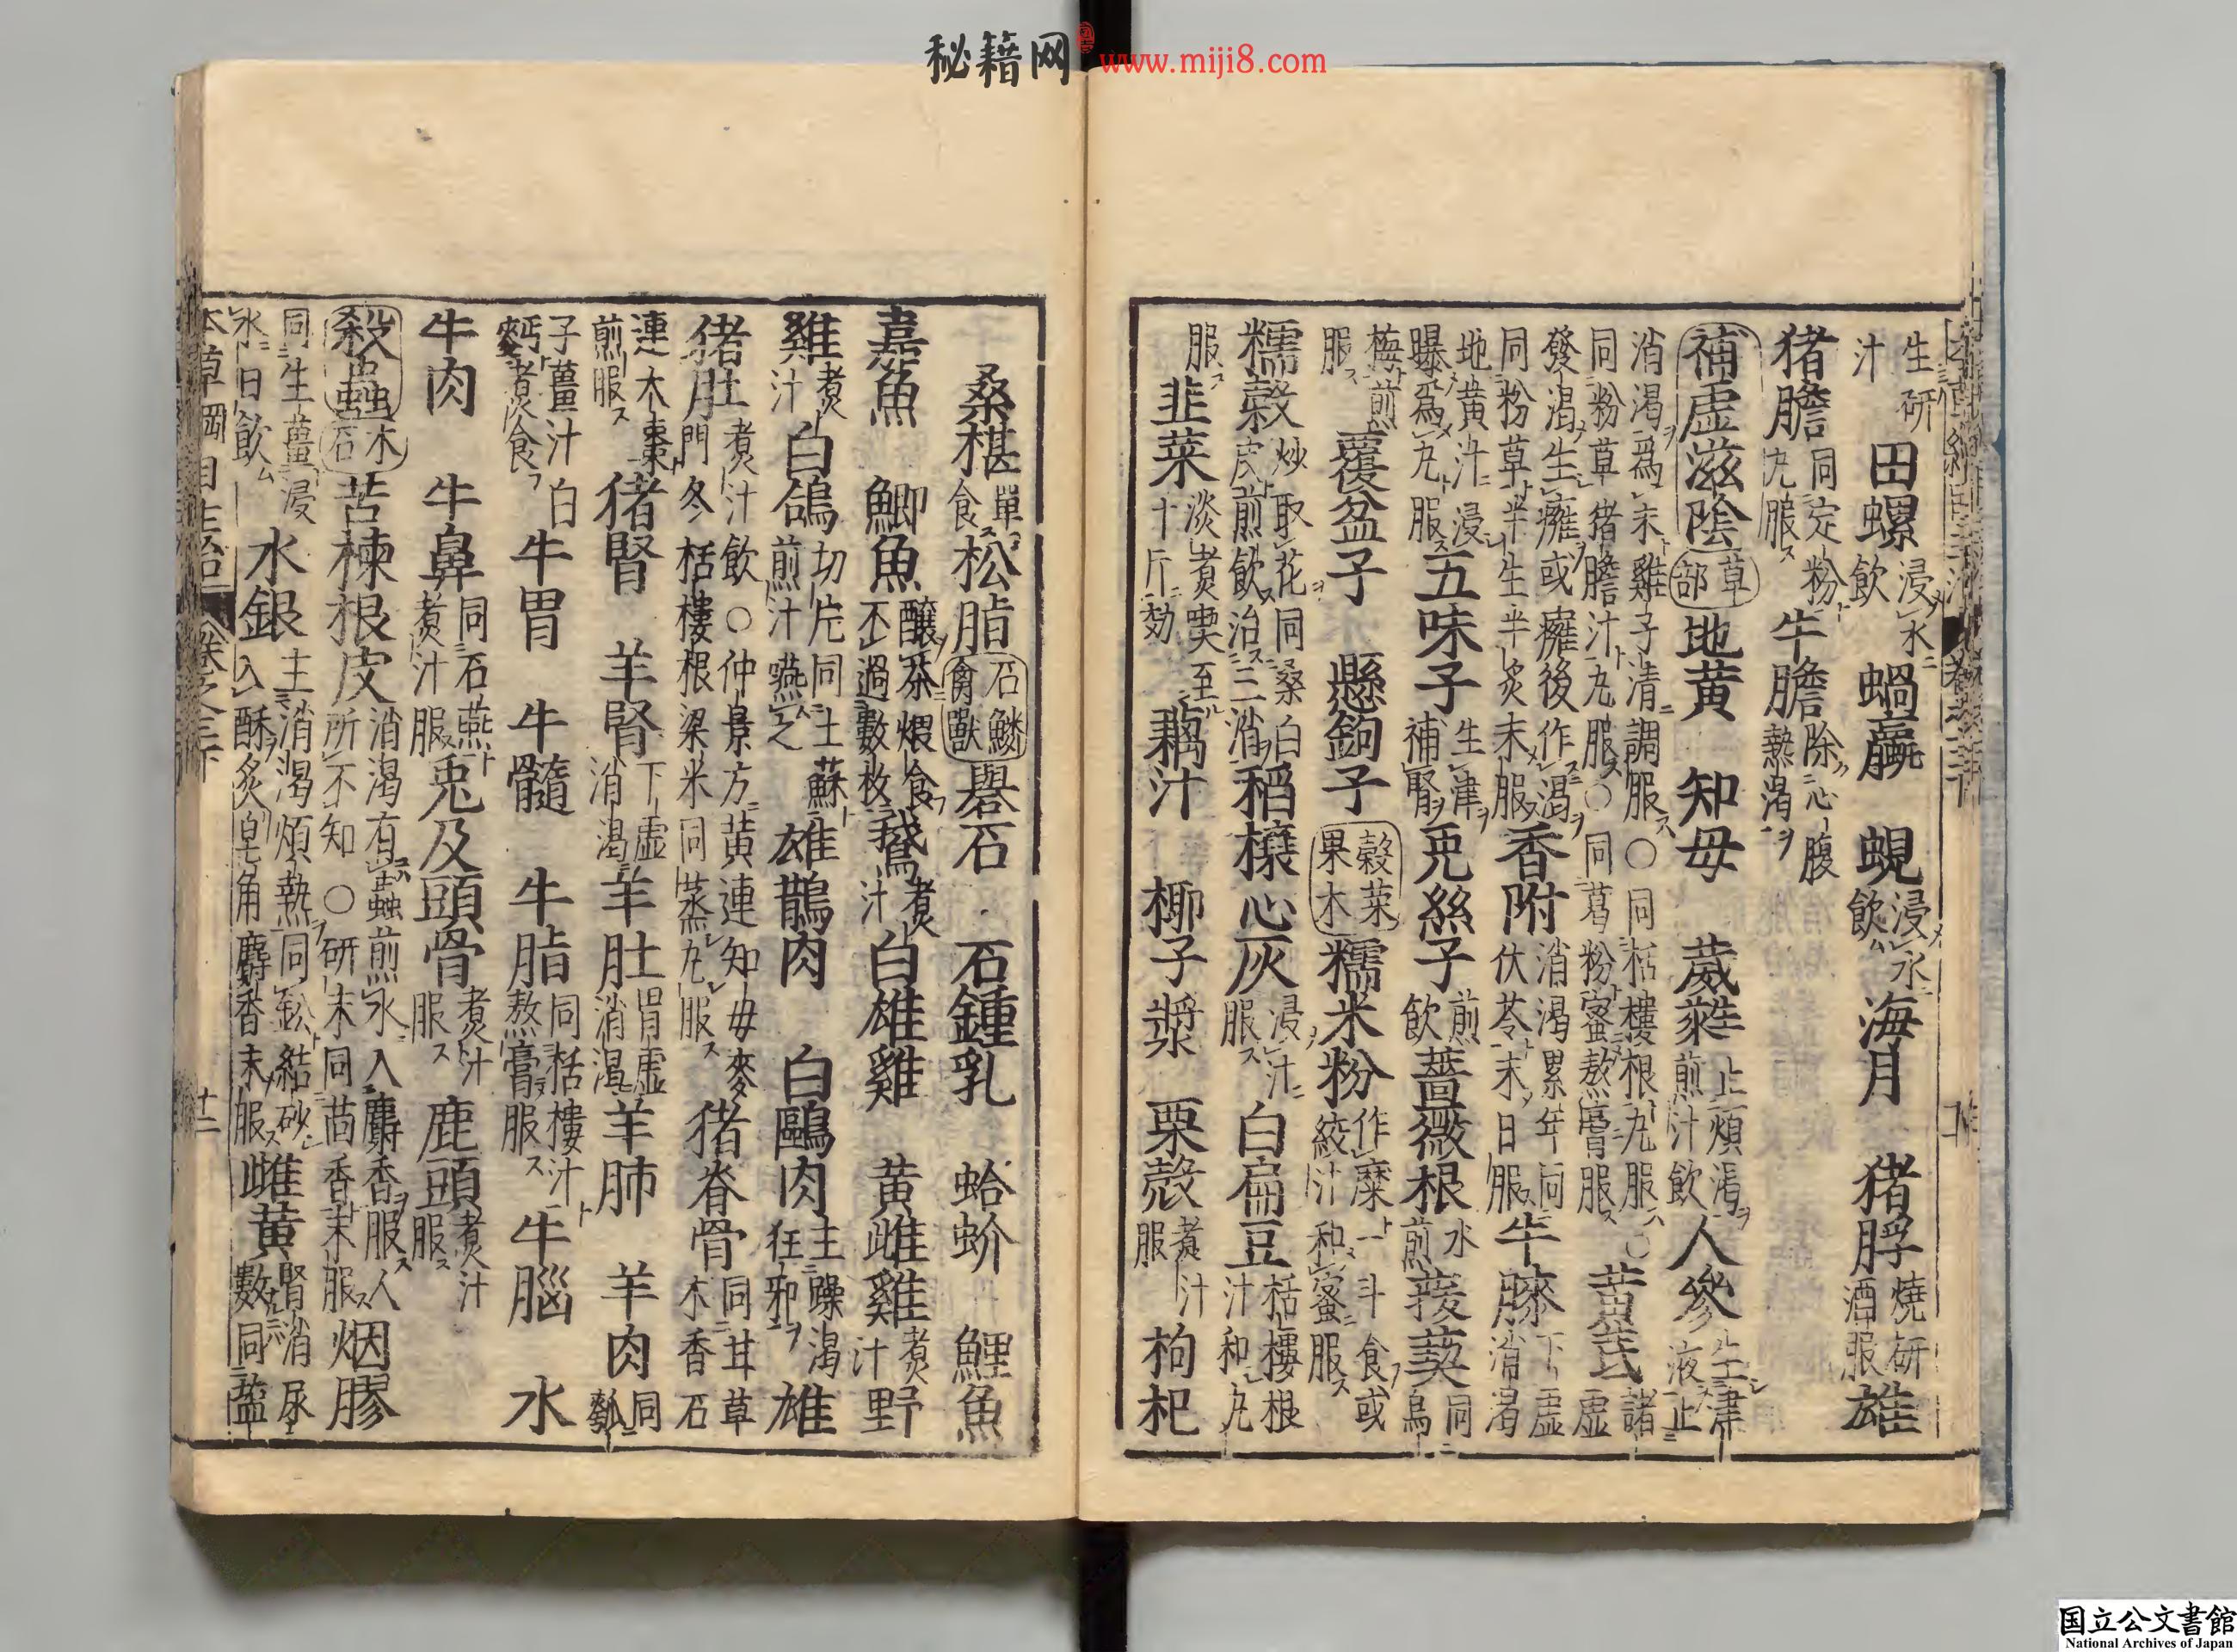 秘籍网 www.miji8.com
生研汁 田螺 浸水飲 蝸蠃 蜆 浸水飲 海月 猪脬 燒研酒服 雄
猪膽 同定粉丸服 牛膽 除心腹熱渴
補虛滋陰 草部 地黄 知毋 葳蕤 止煩渴煎汁飲 人參 生津液止
消渴爲末雞子清調服○同栝樓根丸服○同粉草猪膽汁丸服○同葛粉蜜熬膏服 黄芪 諸虛
發渴生癰或癰後作渴同粉草半生半炙末服 香附 消渴累年同伏苓末日服 牛膝 下虛消渴
地黄汁浸曝爲丸服 五味子 生津補腎 兎絲子 煎飲 薔薇根 水煎 菝葜 同烏
梅煎服 覆盆子 懸鉤子 穀菜果木 糯米粉 作糜一斗食或絞汁和蜜服
糯穀 炒取花同桑白皮煎飲治三消 稻穰心灰 浸汁服 白扁豆 栝樓根汁和丸
服 韭菜 淡煮喫至十斤効 藕汁 椰子漿 栗殻 煮汁服 枸杞
桑椹 單食 松脂 石鱗禽獸 礜石 石鍾乳 蛤蚧 鯉魚
嘉魚 鯽魚 釀茶煨食不過數枚 鵞 煮汁 白雄雞 黄雌雞 煮汁 野
雞 煮汁 白鴿 切片同土蘇煎汁嚥之 雄鵲肉 白鷗肉 主躁渴狂邪 雄
猪肚 煮汁飲○仲景方黄連知毋麥門冬栝樓根梁米同蒸丸服 猪脊骨 同甘草木香石
連木棗煎服 猪腎 羊腎 下虛消渴 羊肚 胃虛消渴 羊肺 羊肉 同瓠
子薑汁白麪煮食 牛胃 牛髓 牛脂 同栝樓汁熬膏服 牛腦 水
牛肉 牛鼻 同石燕煮汁服 兎及頭骨 煮汁服 鹿頭 煮汁服
殺蟲 木石 苦楝根皮 消渴有蟲煎水入麝香服人所不知○研末同茴香末服 烟膠
同生薑浸水日飲 水銀 主消渴煩熱同鉛結砂入酥炙皂角麝香末服 雌黄 腎消尿數同鹽
本草綱目主治 卷之三下 十二
国立公文書館
National Archives of Japan